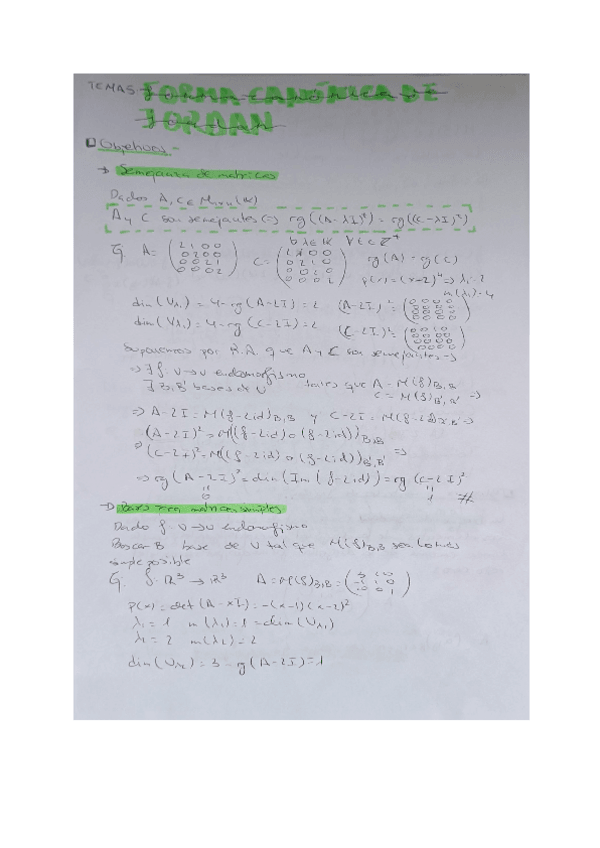 TEMA5 FORMA CANÓNICA DE
JORDAN
Objetivos -
→ Semejanza de matrices
Dados A, C ∈ Mnxn(K)
A y C son semejantes (=) rg((A-λI)^t) = rg((C-λI)^t)
∀λ∈K ∀t∈Z^+
Ej. A = (2 1 0 0 / 0 2 0 0 / 0 0 2 1 / 0 0 0 2) C = (2 1 0 0 / 0 2 1 0 / 0 0 2 0 / 0 0 0 2) rg(A) = rg(C)
p(x) = (x-2)^4 => λ1 = 2
m(λ1) = 4
dim(Vλ1) = 4-rg(A-2I) = 2 (A-2I)^2 = (0 0 0 0 / 0 0 0 0 / 0 0 0 0 / 0 0 0 0)
dim(Vλ1) = 4-rg(C-2I) = 2 (C-2I)^2 = (0 0 1 0 / 0 0 0 0 / 0 0 0 0 / 0 0 0 0)
Suponemos por R.A. que A y C son semejantes =>
=> ∃ f: V→V endomorfismo
∃ B, B' bases de V tales que A = M(f)B,B
C = M(f)B',B' =>
=> A-2I = M(f-2id)B,B y C-2I = M(f-2id)B',B' =>
(A-2I)^2 = M((f-2id) o (f-2id))B,B
(C-2I)^2 = M((f-2id) o (f-2id))B',B' =>
=> rg(A-2I)^2 = dim(Im(f-2id)) = rg(C-2I)^2
0 1 #
→ Bases para matrices simples
Dado f: V→V endomorfismo
Buscar B base de V tal que M(f)B,B sea lo más
simple posible
Ej. f: R^3 → R^3 A = M(f)B,B = (3 1 0 / -1 1 0 / 0 0 1)
P(x) = det(A-xI) = -(x-1)(x-2)^2
λ1 = 1 m(λ1) = 1 = dim(Vλ1)
λ2 = 2 m(λ2) = 2
dim(Vλ2) = 3-rg(A-2I) = 1